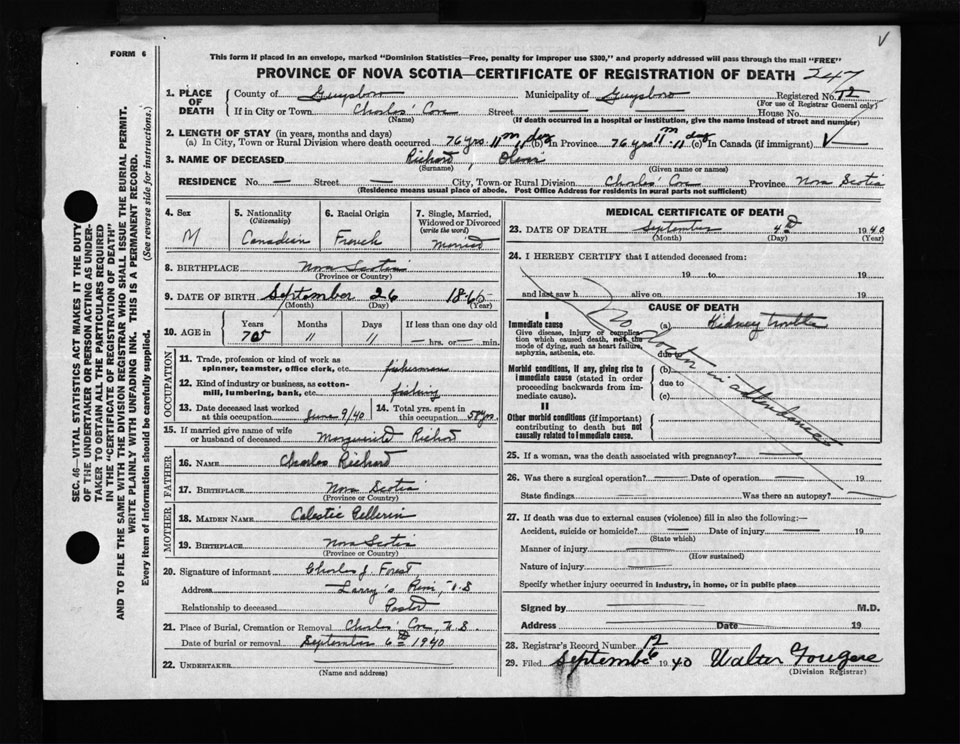 FORM 6
V
This form if placed in an envelope, marked "Dominion Statistics—Free, penalty for improper use $300," and properly addressed will pass through the mail "FREE"
PROVINCE OF NOVA SCOTIA—CERTIFICATE OF REGISTRATION OF DEATH 247
1. PLACE OF DEATH County of Guysboro Municipality of Guysboro Registered No. 12
(For use of Registrar General only)
If in City or Town Charlos' Cove Street — House No. —
(Name) (If death occurred in a hospital or institution, give the name instead of street and number)
2. LENGTH OF STAY (in years, months and days)
(a) In City, Town or Rural Division where death occurred 76 yrs. 11 m dys (b) In Province 76 yrs 11 m 11 dys (c) In Canada (if immigrant)
3. NAME OF DECEASED Richard,
(Surname) (Given name or names)
RESIDENCE No. — Street — City, Town or Rural Division Charlos' Cove Province Nova Scotia
(Residence means usual place of abode. Post Office Address for residents in rural parts not sufficient)
SEC. 46—VITAL STATISTICS ACT MAKES IT THE DUTY
OF THE UNDERTAKER OR PERSON ACTING AS UNDER-
TAKER TO OBTAIN ALL THE PARTICULARS REQUIRED
IN THE "CERTIFICATE OF REGISTRATION OF DEATH"
AND TO FILE THE SAME WITH THE DIVISION REGISTRAR WHO SHALL ISSUE THE BURIAL PERMIT.
WRITE PLAINLY WITH UNFADING INK. THIS IS A PERMANENT RECORD.
Every item of information should be carefully supplied. (See reverse side for instructions.)
4. Sex
M
5. Nationality
(Citizenship)
Canadian
6. Racial Origin
French
7. Single, Married,
Widowed or Divorced
(write the word)
Married
8. BIRTHPLACE Nova Scotia
(Province or Country)
9. DATE OF BIRTH September 26
(Month) (Day) (Year)
10. AGE in Years Months Days If less than one day old
" " — hrs. or — min.
OCCUPATION
11. Trade, profession or kind of work as
spinner, teamster, office clerk, etc. fisherman
12. Kind of industry or business, as cotton-
mill, lumbering, bank, etc. fishing
13. Date deceased last worked
at this occupation June 9/40
14. Total yrs. spent in
this occupation 58 yrs.
15. If married give name of wife
or husband of deceased Marguerite Richard
FATHER
16. NAME Charles Richard
17. BIRTHPLACE Nova Scotia
(Province or Country)
MOTHER
18. MAIDEN NAME Celestic Pellerin
19. BIRTHPLACE Nova Scotia
(Province or Country)
20. Signature of informant Charles J. Forest
Address Larry's River, N.S
Relationship to deceased Pastor
21. Place of Burial, Cremation or Removal Charlos' Cove, N.S.
Date of burial or removal September 6th 1940
22. UNDERTAKER
(Name and address)
MEDICAL CERTIFICATE OF DEATH
23. DATE OF DEATH September 4th 1940
(Month) (Day) (Year)
24. I HEREBY CERTIFY that I attended deceased from:
19 to 19
and last saw h alive on 19
No doctor in attendance
CAUSE OF DEATH
I
Immediate cause
Give disease, injury or complica-
tion which caused death, not the
mode of dying, such as heart failure,
asphyxia, asthenia, etc.
(a) Kidney trouble
due to
Morbid conditions, if any, giving rise to
immediate cause (stated in order
proceeding backwards from im-
mediate cause).
(b)
due to
(c)
II
Other morbid conditions (if important)
contributing to death but not
causally related to immediate cause.
25. If a woman, was the death associated with pregnancy? —
26. Was there a surgical operation? — Date of operation — 19
State findings — Was there an autopsy? —
27. If death was due to external causes (violence) fill in also the following:—
Accident, suicide or homicide? — Date of injury — 19
(State which)
Manner of injury —
(How sustained)
Nature of injury —
Specify whether injury occurred in industry, in home, or in public place
Signed by M.D.
Address Date 19
28. Registrar's Record Number 12
29. Filed September 6 1940 Walter Fougere
(Division Registrar)